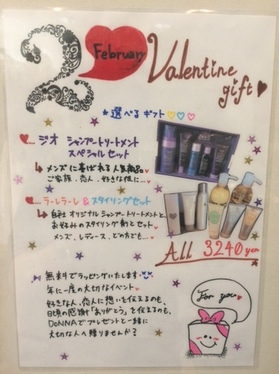 2
February
Valentine
gift
★選べるギフト♡♡♡
ジオ シャンプートリートメント
スペシャルセット
↳メンズに喜ばれる人気商品♡
ご家族、恋人、好きな人に…
ラ・レ・ラ・レ & スタイリングセット
↳自社オリジナルシャンプートリートメントと
お好みのスタイリング剤とセット
メンズ、レディース、どの方でも…
All 3240yen
無料でラッピングいたします
年に一度の大切なイベント
好きな人、恋人に想いを伝えるのも、
日頃の感謝「ありがとう」を伝えるのも、
DoNNAでプレゼントと一緒に
大切な人へ贈りませんか？
For you♥